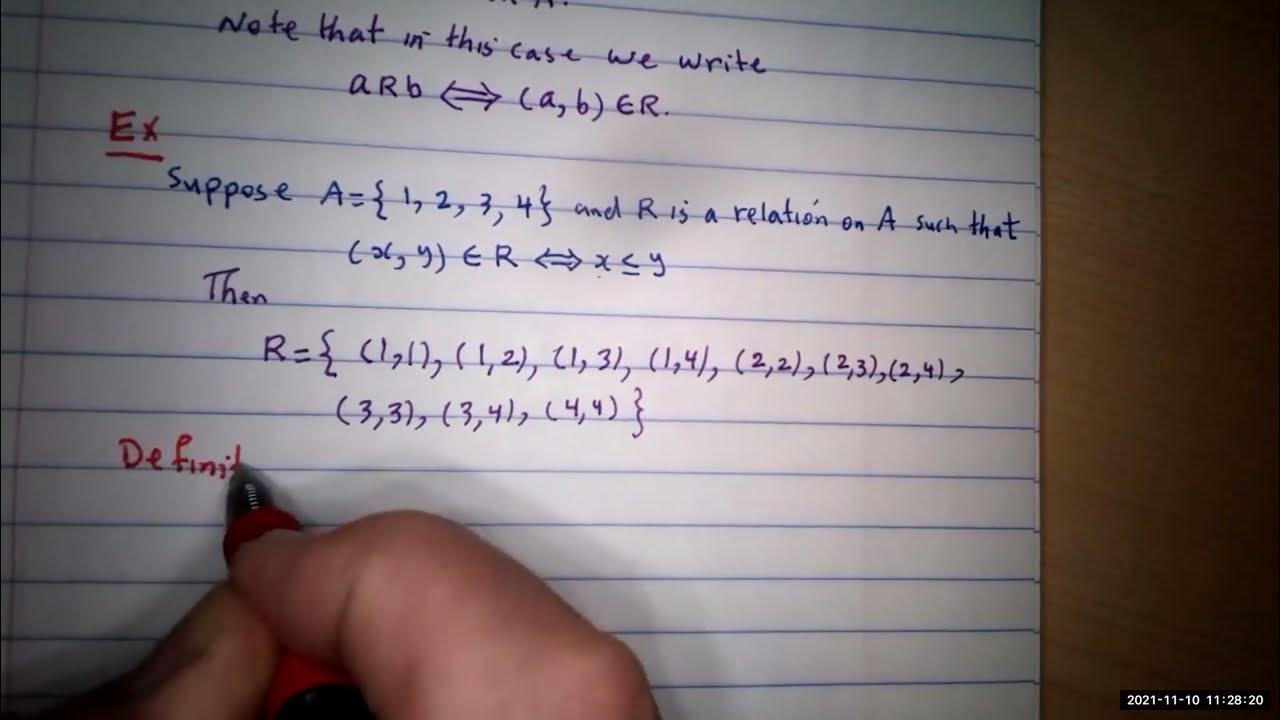 Note that in this case we write
aRb ⟺ (a, b) ∈ R.
Ex
Suppose A = { 1, 2, 3, 4} and R is a relation on A such that
(x, y) ∈ R ⟺ x ≤ y
Then
R = { (1,1), (1,2), (1,3), (1,4), (2,2), (2,3), (2,4),
(3,3), (3,4), (4,4) }
Definit
2021-11-10 11:28:20